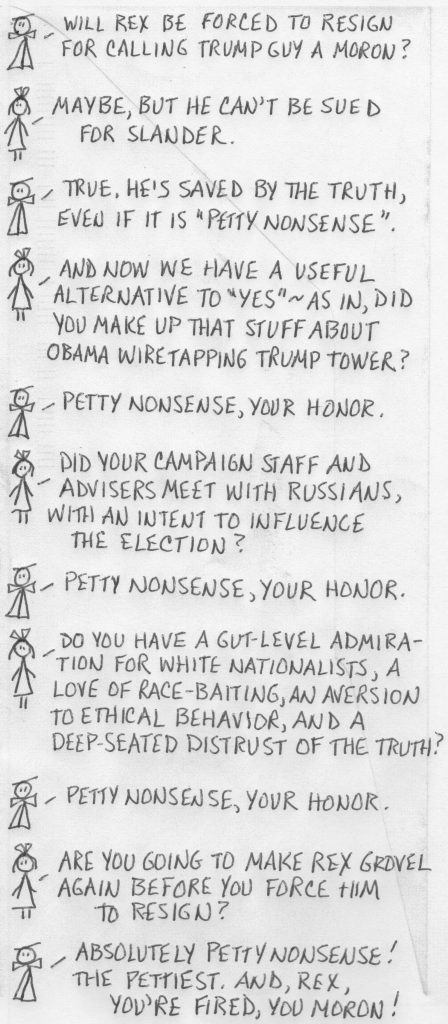 WILL REX BE FORCED TO RESIGN
FOR CALLING TRUMP GUY A MORON?
MAYBE, BUT HE CAN'T BE SUED
FOR SLANDER.
TRUE. HE'S SAVED BY THE TRUTH,
EVEN IF IT IS "PETTY NONSENSE".
AND NOW WE HAVE A USEFUL
ALTERNATIVE TO "YES" ~ AS IN, DID
YOU MAKE UP THAT STUFF ABOUT
OBAMA WIRETAPPING TRUMP TOWER?
PETTY NONSENSE, YOUR HONOR.
DID YOUR CAMPAIGN STAFF AND
ADVISERS MEET WITH RUSSIANS,
WITH AN INTENT TO INFLUENCE
THE ELECTION?
PETTY NONSENSE, YOUR HONOR.
DO YOU HAVE A GUT-LEVEL ADMIRA-
TION FOR WHITE NATIONALISTS, A
LOVE OF RACE-BAITING, AN AVERSION
TO ETHICAL BEHAVIOR, AND A
DEEP-SEATED DISTRUST OF THE TRUTH?
PETTY NONSENSE, YOUR HONOR.
ARE YOU GOING TO MAKE REX GROVEL
AGAIN BEFORE YOU FORCE HIM
TO RESIGN?
ABSOLUTELY PETTY NONSENSE!
THE PETTIEST. AND, REX,
YOU'RE FIRED, YOU MORON!